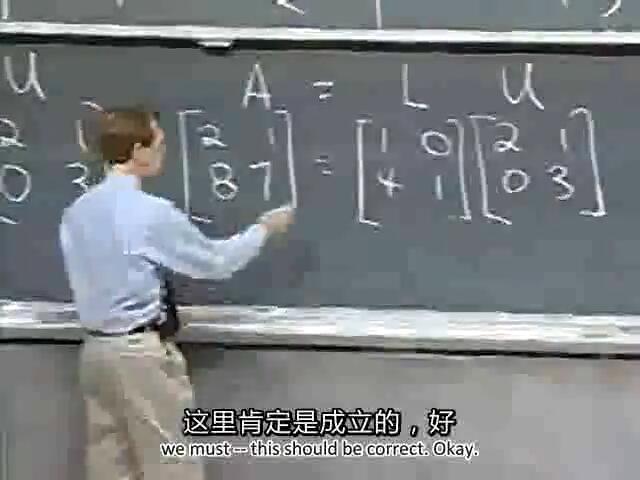 U A = L U
2 1 [2 1] = [1 0] [2 1]
0 3 [8 7] [4 1] [0 3]
这里肯定是成立的，好
we must -- this should be correct. Okay.